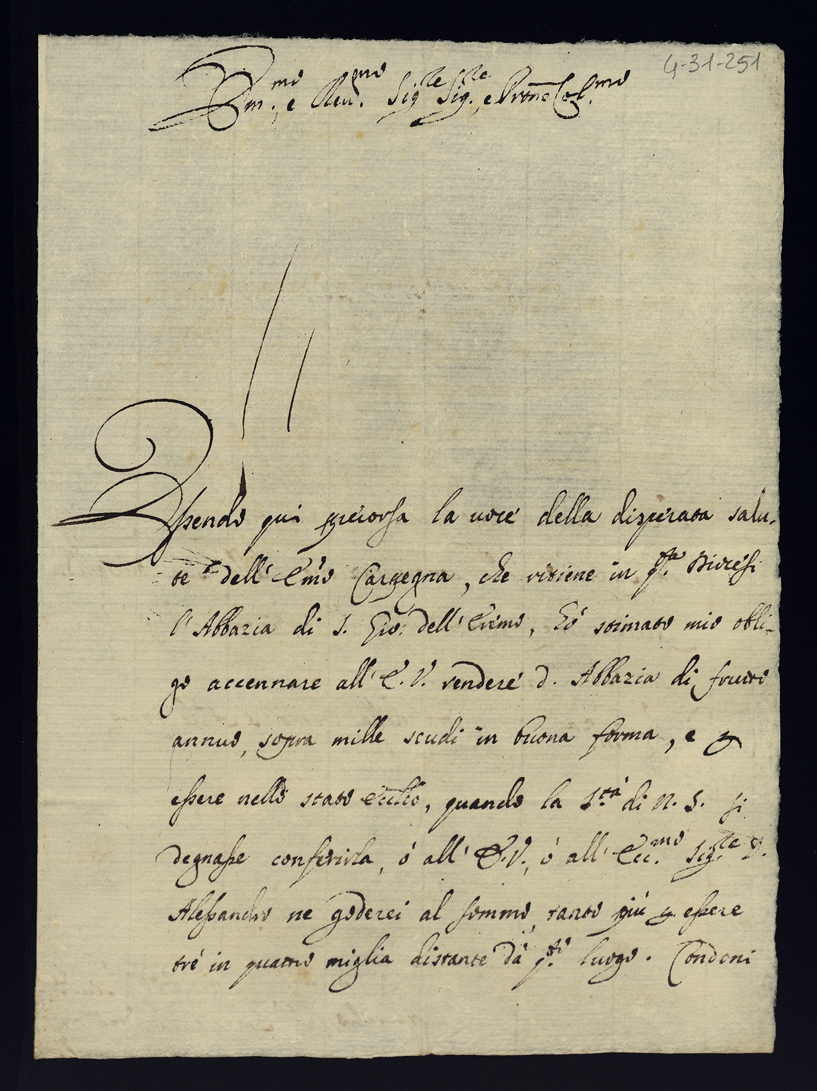 4-31-251
Em.mo, e Reu.mo Sig.re Sig.re, e Prone Col.mo
Essendo qui precorsa la uoce della disperata salu-
te dell' Em.o Carpegna, che ritiene in q.ta Diocesi
l'Abbazia di S. Gio: dell' Eremo, hò stimato mio obli-
go accennare all' E. V. rendere d. Abbazia di frutto
annuo, sopra mille scudi in buona forma, e p
essere nello stato Eccl.co, quando la S.tà di N. S. si
degnasse conferirla, ò all' E. V., ò all' Ecc.mo Sig.re D.
Alessandro ne goderei al sommo, tanto più p essere
trè in quattro miglia distante dà q.to luogo. Condoni